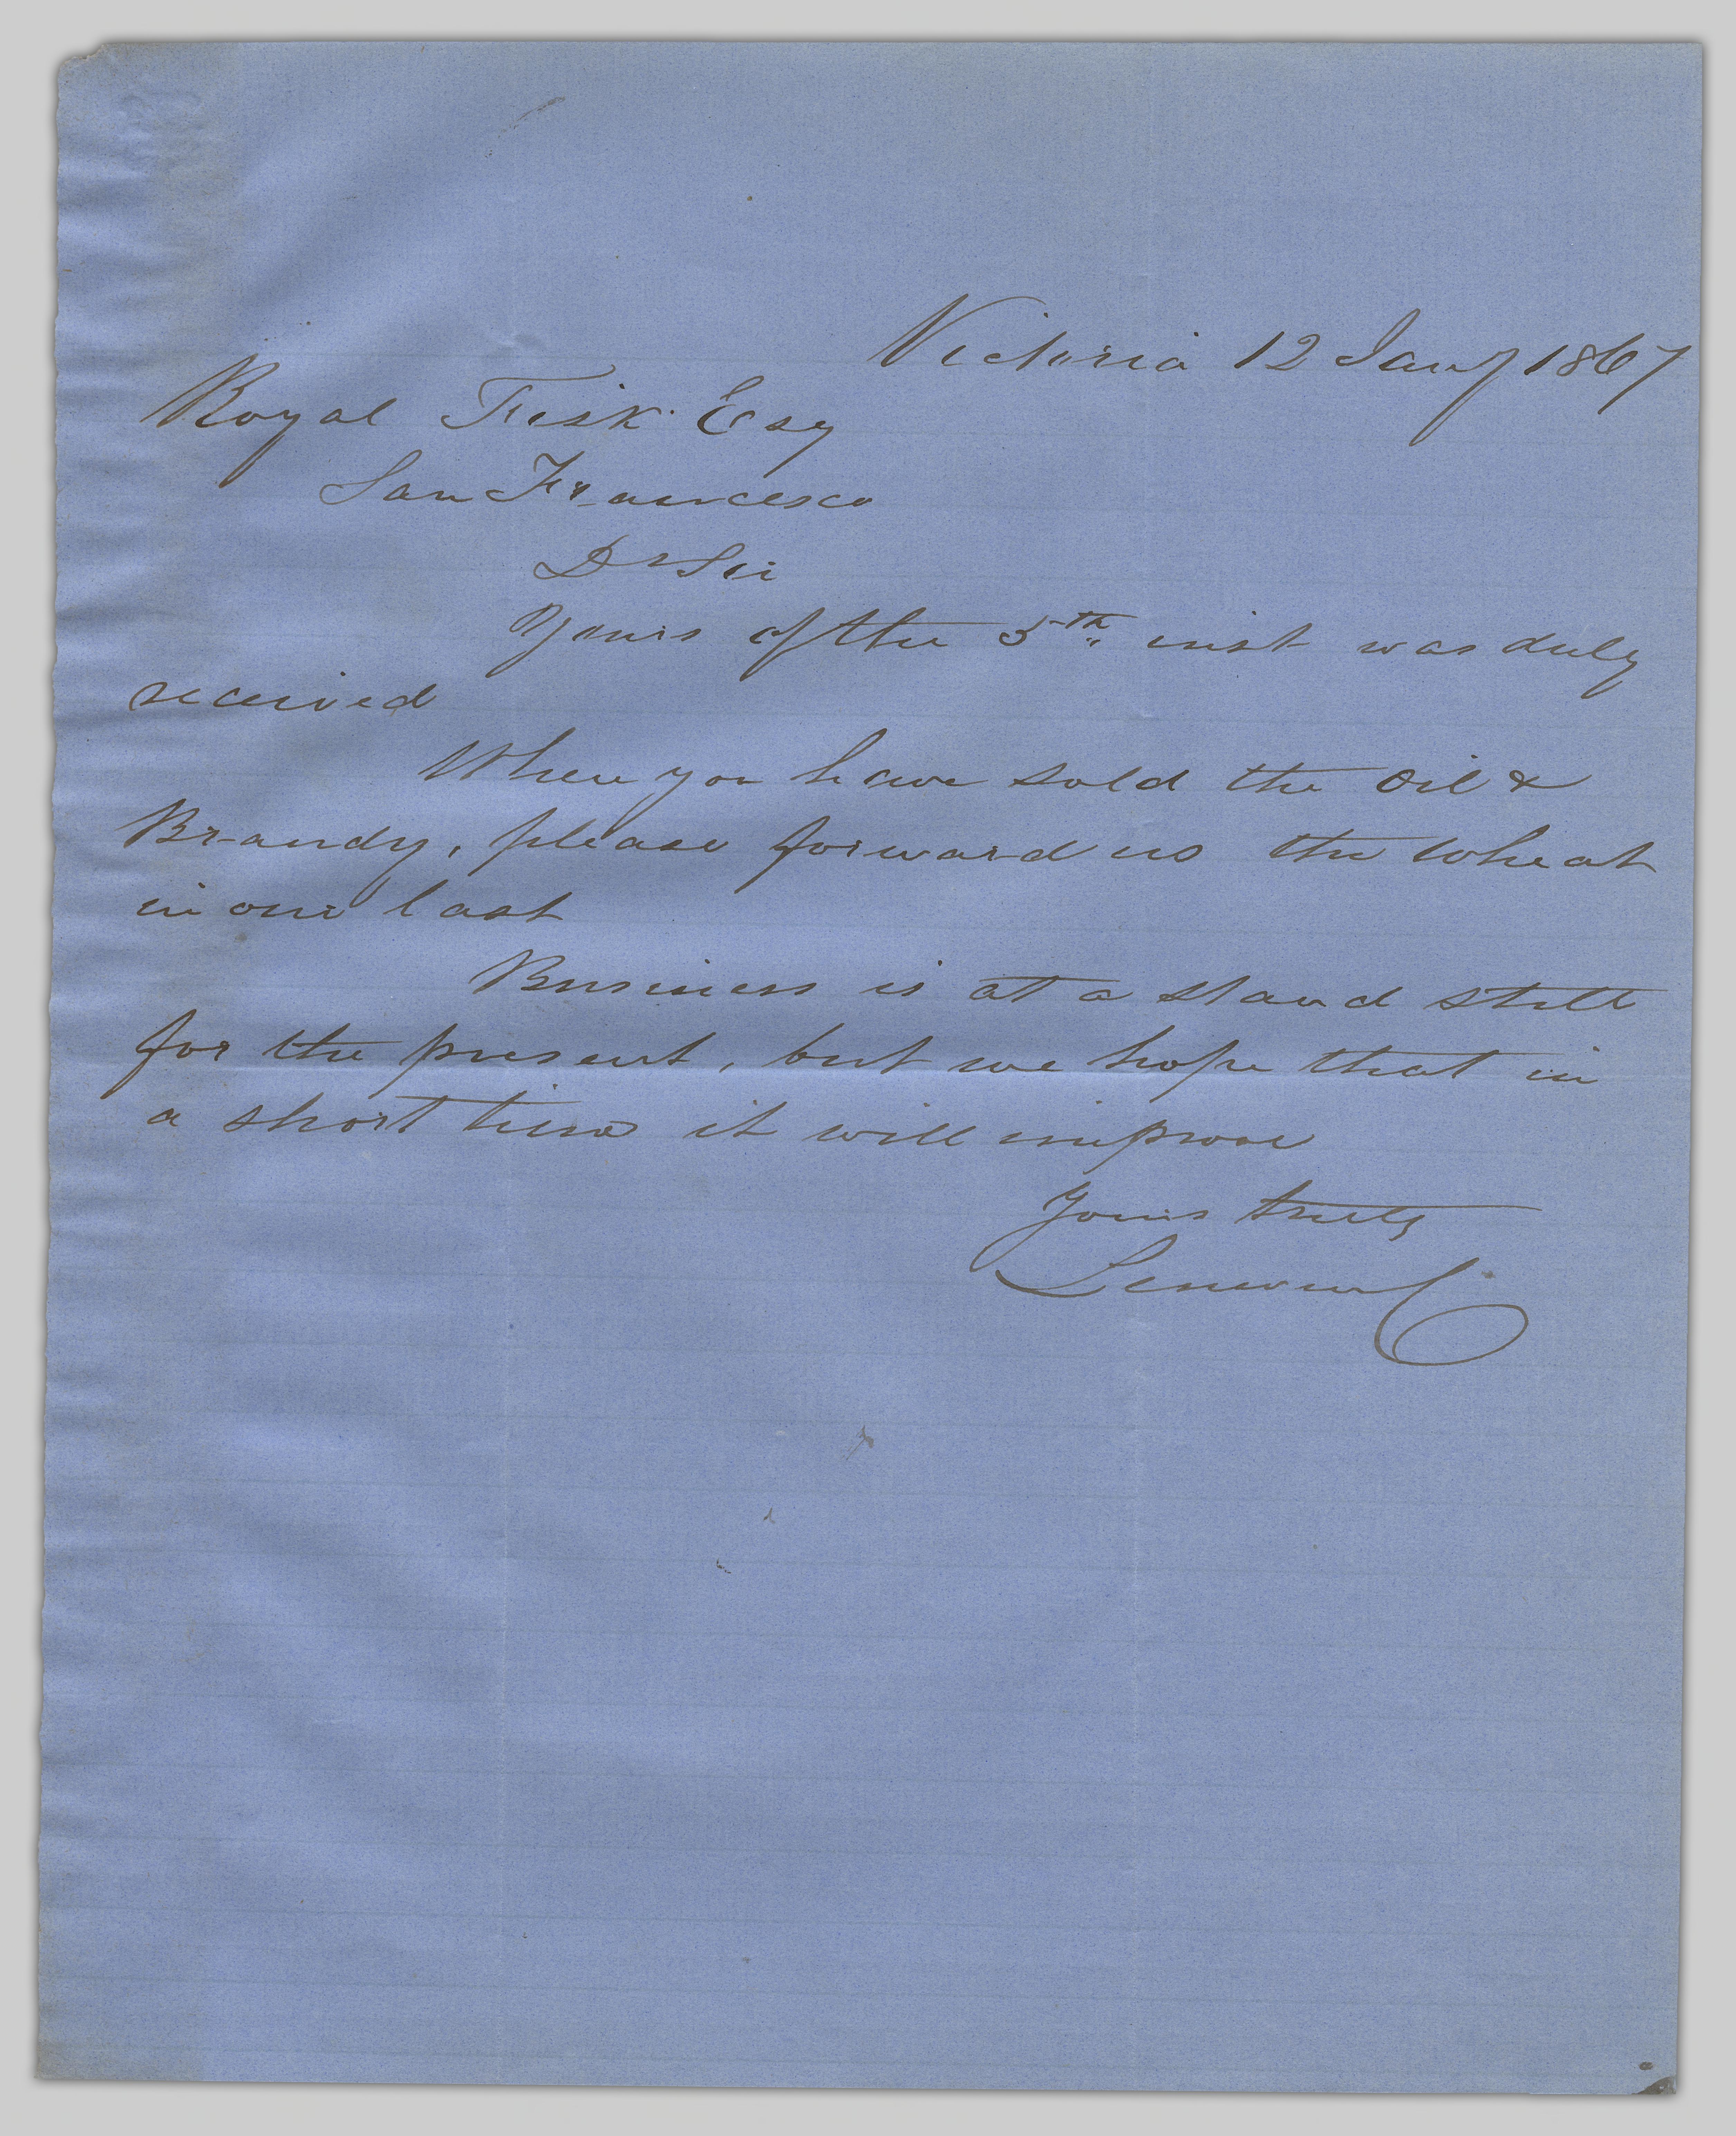 Victoria 12 Jany 1867
Royal Fisk Esq
San Francisco
Dr Sir
Yours of the 5th inst was duly
received
When you have sold the Oil &
Brandy, please forward us the wheat
in our last
Business is at a stand still
for the present, but we hope that in
a short time it will improve
Yours truly